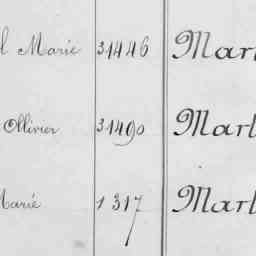 l Marie 31446 Mart
Ollivier 31490 Mart
Marie 1317 Mart